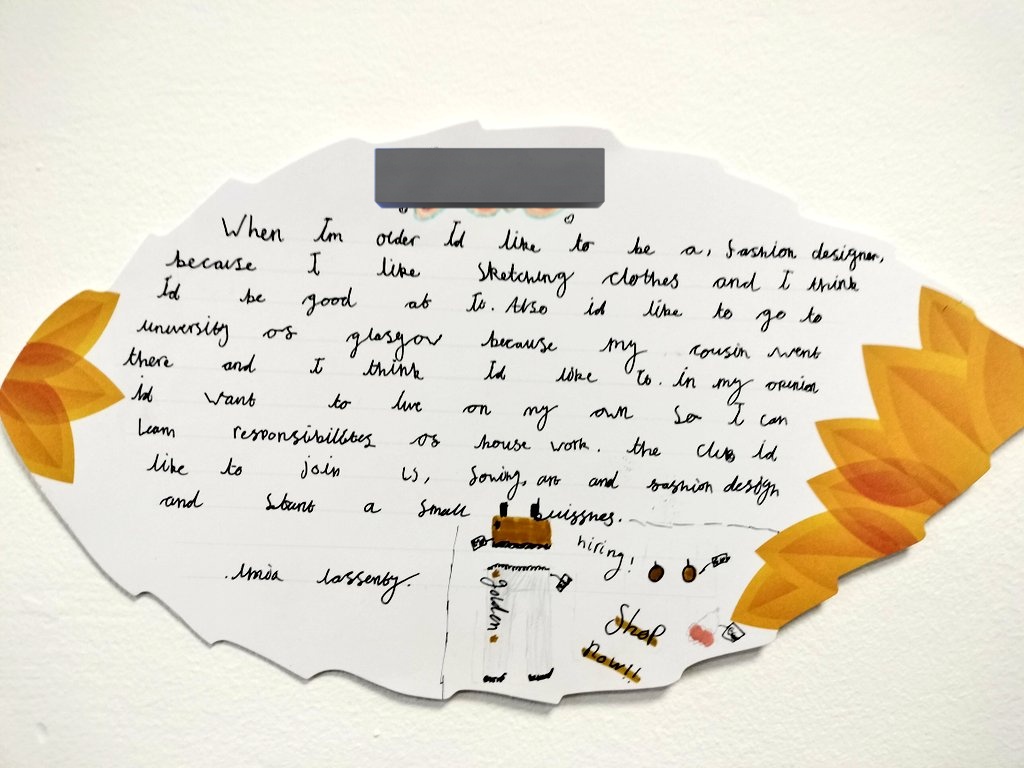 When Im older Id like to be a, fashion designer,
because I like sketching clothes and I think
Id be good at It. Also id like to go to
university of glasgow because my cousin went
there and I think Id like It. in my opinion
id want to live on my own So I can
learn responsibilites of house work. the club id
like to join is, sowing, art and fashion design
and start a small buissnes.
hiring!
lassenty.
golden
Shop
now!!